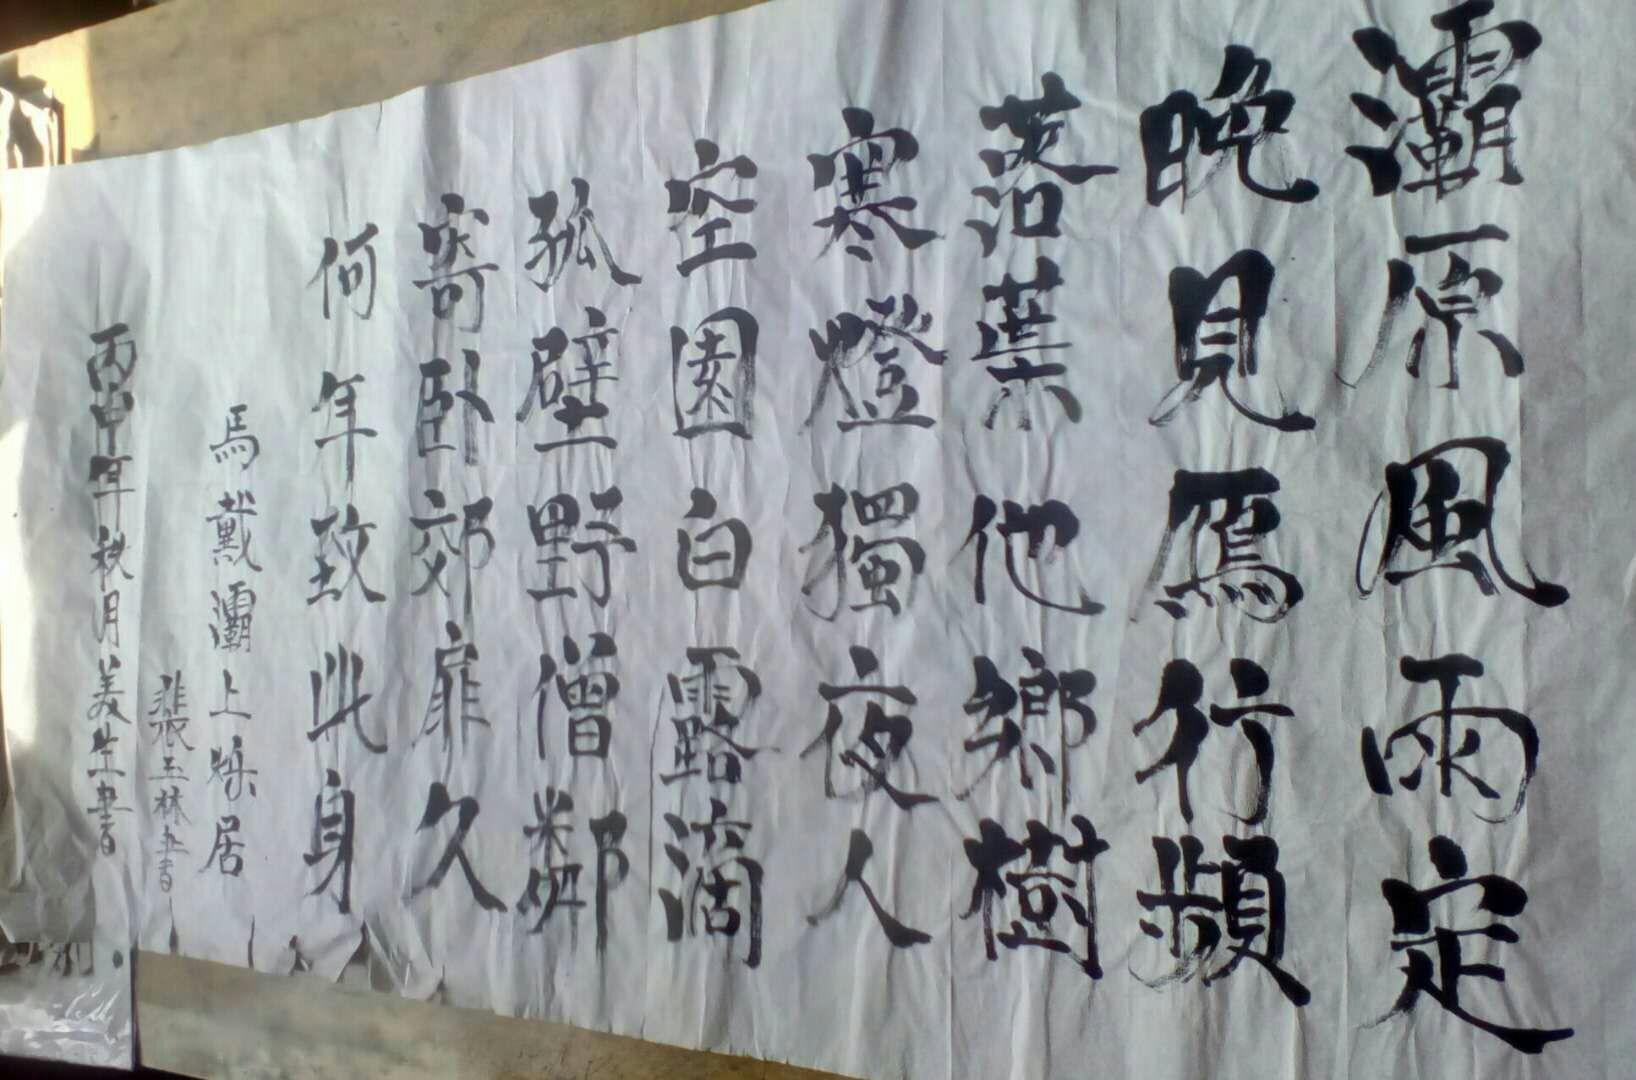 灞原風雨定
晚見鴈行頻
落葉他鄉樹
寒燈獨夜人
空園白露滴
孤壁野僧鄰
寄臥郊扉久
何年致此身
馬戴灞上秋居
裴玉林書
丙申年秋月美生書